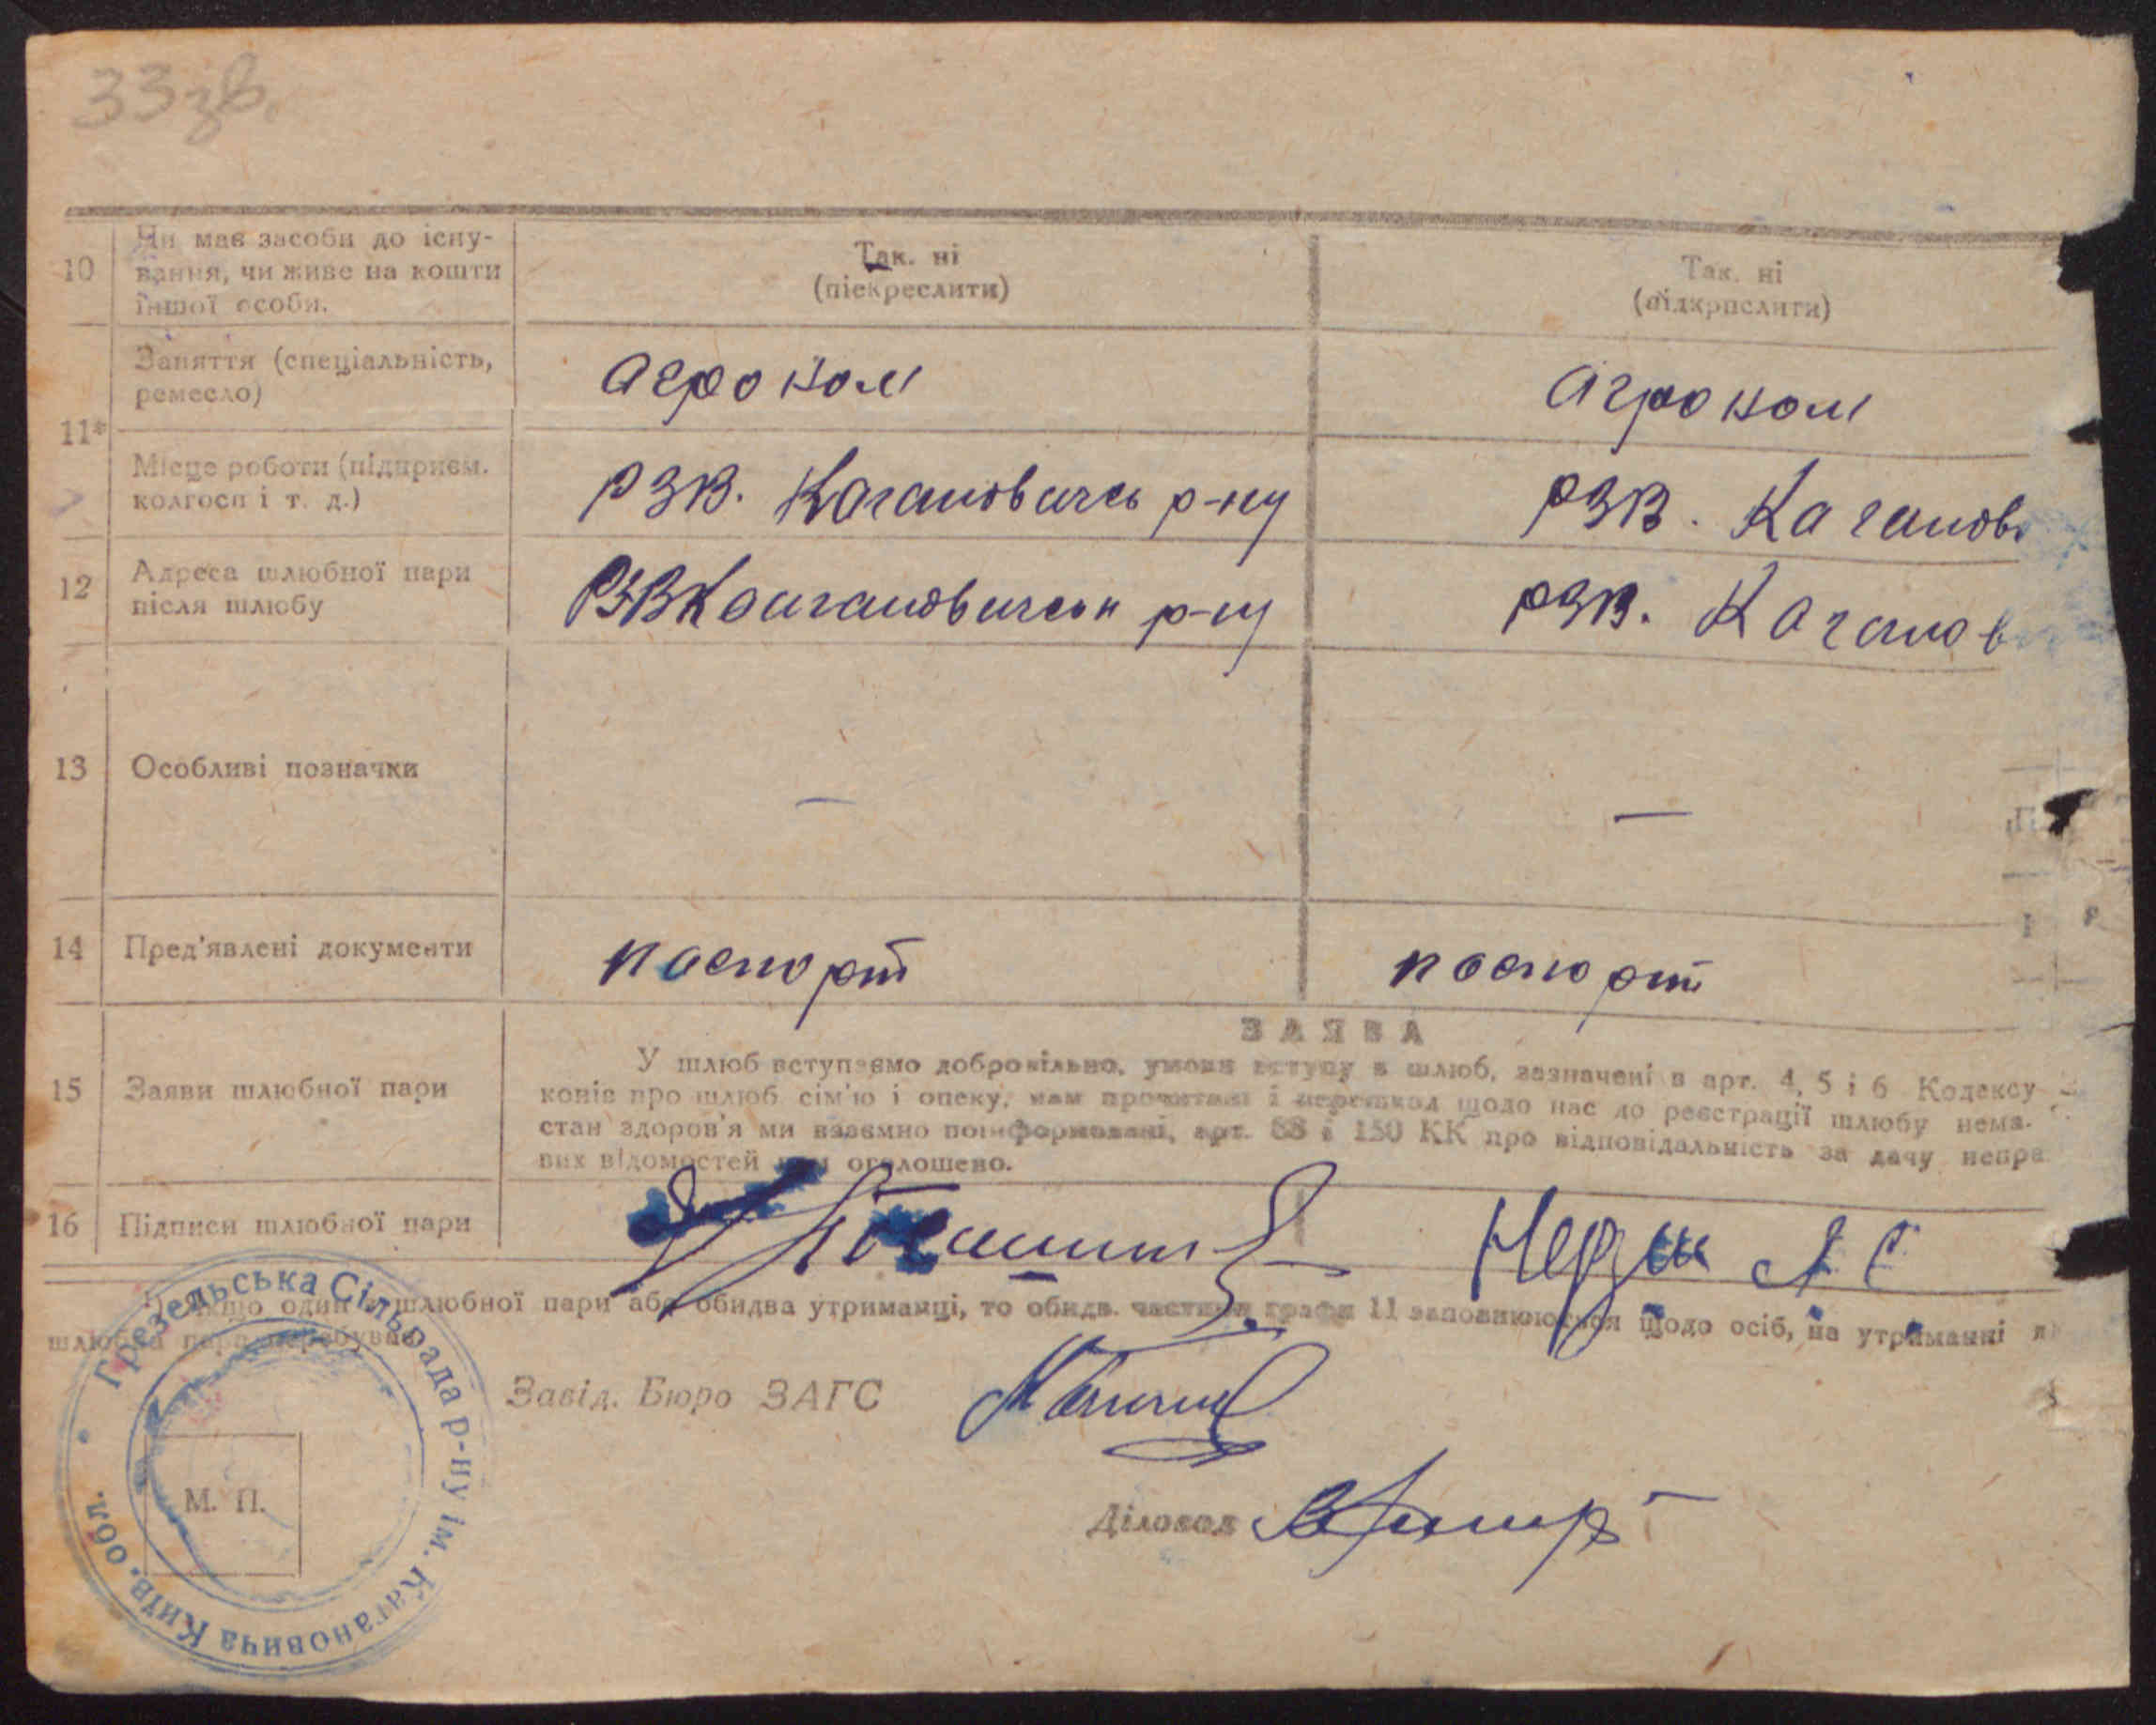 33зв.
10 Чи має засоби до існу-
вання, чи живе на кошти
іншої особи.
Так. ні
(піекреслити)
Так. ні
(підкрпслити)
11*
Заняття (спеціальність,
ремесло)
агроном
агроном
Місце роботи (підприєм.
колгосп і т. д.)
РЗВ. Кагановичсь р-ну
РЗВ. Каганов.
12 Адреса шлюбної пари
після шлюбу
РЗВ р-ну
РЗВ. Каганов
13 Особливі позначки
—
—
14 Пред'явлені документи
паспорт
паспорт
ЗАЯВА
15 Заяви шлюбної пари
У шлюб вступаємо добровільно, умови вступу в шлюб, зазначені в арт. 4, 5 і 6 Кодексу
конів про шлюб сім'ю і опеку, нам прочитані і перешкод щодо нас до реєстрації шлюбу нема.
стан здоров'я ми взаємно поінформовані, арт. 88 і 150 КК про відповідальність за дачу непра
вих відомостей нам оголошено.
16 Підписи шлюбної пари
якщо один шлюбної пари або обидва утриманці, то обидв. частини графи 11 заповнюються щодо осіб, на утриманні
шлюбна пара перебуває
Завід. Бюро ЗАГС
Діловод
М. П.
Грезельська Сільрада р-ну ім. Кагановича Київ. обл.